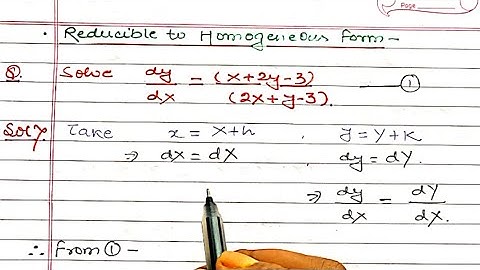 Page
· Reducible to Homogeneous form -
Q. Solve dy/dx = (x+2y-3)/(2x+y-3). — ①
Solⁿ Take x = X+h , y = Y+k
⇒ dx = dX , dy = dY.
⇒ dy/dx = dY/dX.
∴ from ① -